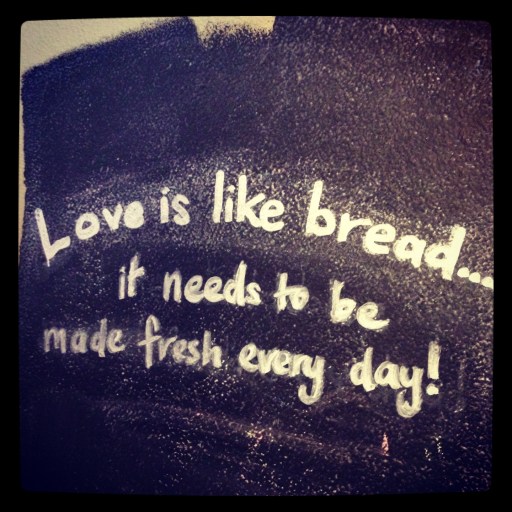 Love is like bread...
it needs to be
made fresh every day!